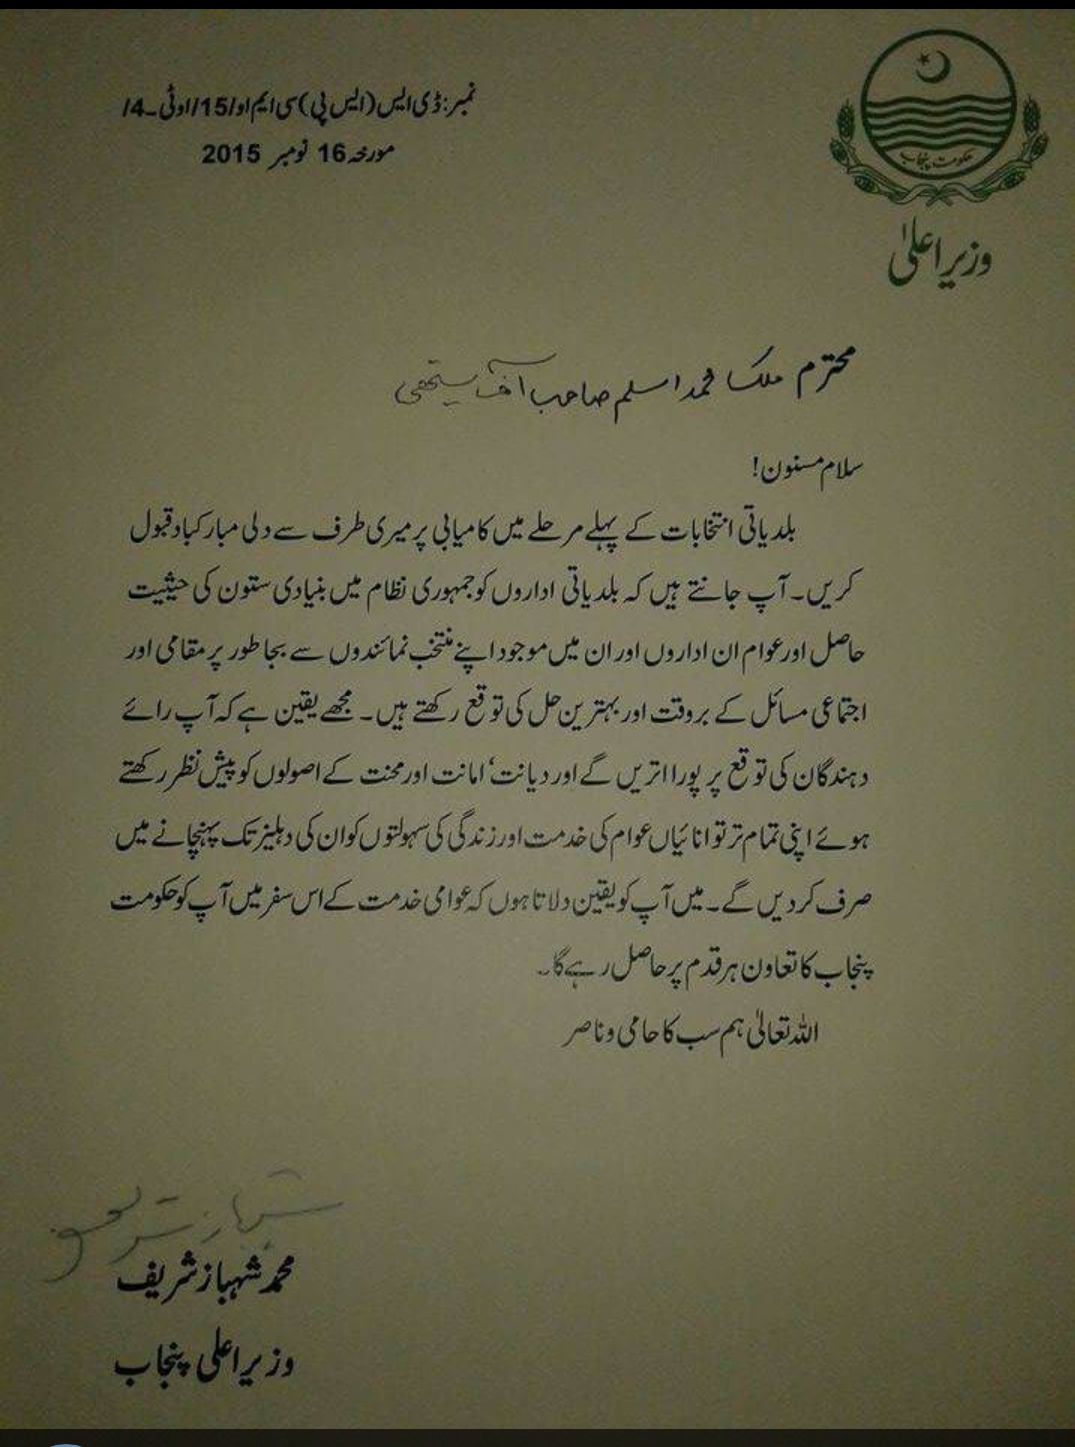 نمبر: ڈی ایس (ایس پی) سی ایم او/15/اوٹی-4/
مورخہ 16 نومبر 2015
حکومت پنجاب
وزیراعلیٰ
محترم ملک محمد اسلم صاحب آف سیتھی
سلام مسنون!
بلدیاتی انتخابات کے پہلے مرحلے میں کامیابی پر میری طرف سے دلی مبارکباد قبول
کریں۔ آپ جانتے ہیں کہ بلدیاتی اداروں کو جمہوری نظام میں بنیادی ستون کی حیثیت
حاصل اور عوام ان اداروں اور ان میں موجود اپنے منتخب نمائندوں سے بجا طور پر مقامی اور
اجتماعی مسائل کے بروقت اور بہترین حل کی توقع رکھتے ہیں۔ مجھے یقین ہے کہ آپ رائے
دہندگان کی توقع پر پورا اتریں گے اور دیانت، امانت اور محنت کے اصولوں کو پیش نظر رکھتے
ہوئے اپنی تمام تر توانائیاں عوام کی خدمت اور زندگی کی سہولتوں کو ان کی دہلیز تک پہنچانے میں
صرف کردیں گے۔ میں آپ کو یقین دلاتا ہوں کہ عوامی خدمت کے اس سفر میں آپ کو حکومت
پنجاب کا تعاون ہر قدم پر حاصل رہے گا۔
اللہ تعالیٰ ہم سب کا حامی و ناصر
شہباز شریف
محمد شہباز شریف
وزیراعلیٰ پنجاب